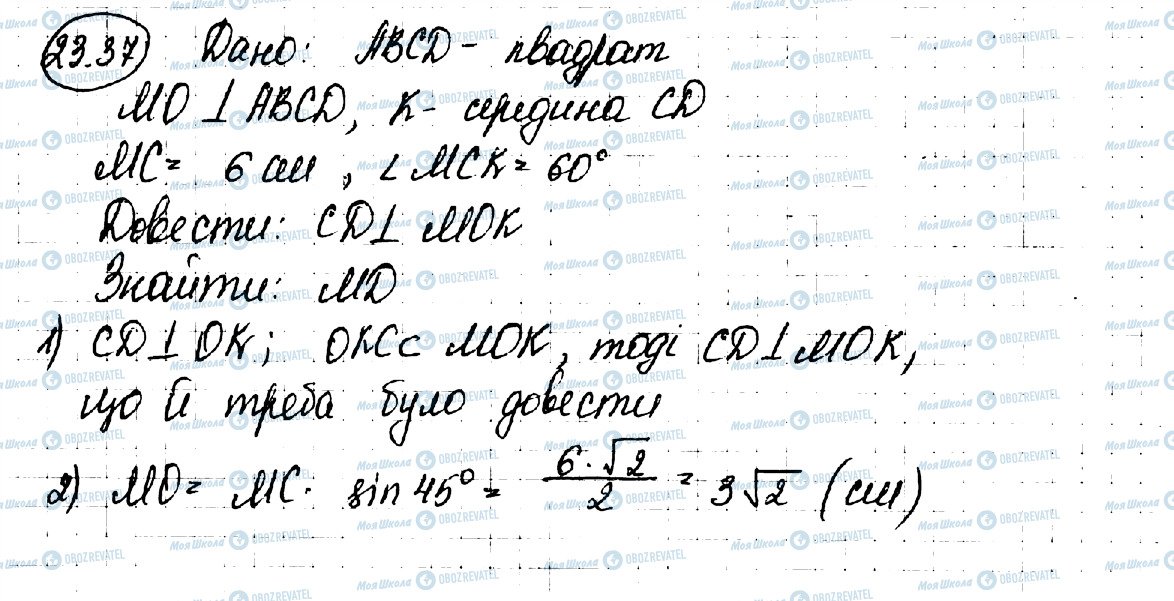 23.37 Дано: ABCD - квадрат
MO ⊥ ABCD, K - середина CD
MC = 6 см, ∠MCK = 60°
Довести: CD ⊥ MOK
Знайти: MD
1) CD ⊥ OK; OK ⊂ MOK, тоді CD ⊥ MOK,
що й треба було довести
2) MO = MC · sin 45° = 6·√2/2 = 3√2 (см)